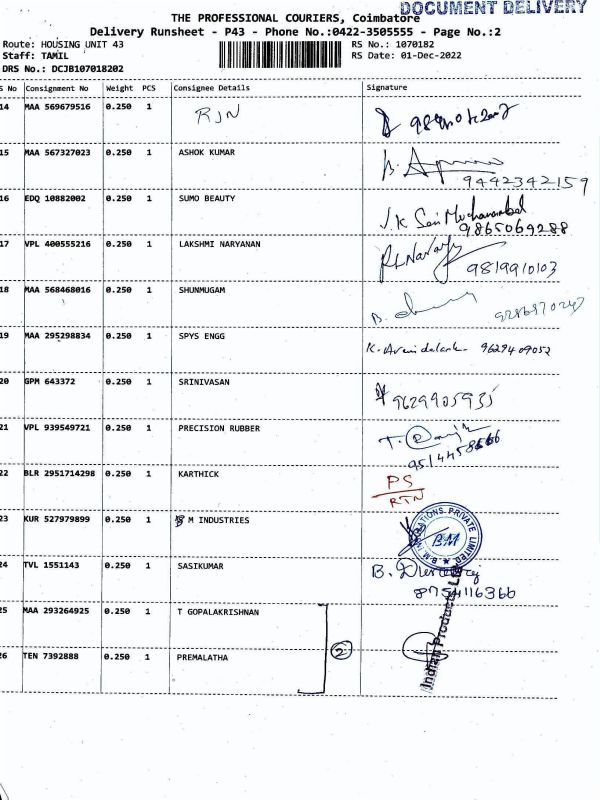 DOCUMENT DELIVERY
THE PROFESSIONAL COURIERS, Coimbatore
Delivery Runsheet - P43 - Phone No.:0422-3505555 - Page No.:2
Route: HOUSING UNIT 43 RS No.: 1070182
Staff: TAMIL RS Date: 01-Dec-2022
DRS No.: DCJB107018202
S No Consignment No Weight PCS Consignee Details Signature
14 MAA 569679516 0.250 1 RJN
15 MAA 567327023 0.250 1 ASHOK KUMAR
9442342159
16 EDQ 10882002 0.250 1 SUMO BEAUTY
9865069288
17 VPL 400555216 0.250 1 LAKSHMI NARYANAN
9819910103
18 MAA 568468016 0.250 1 SHUNMUGAM
19 MAA 295298834 0.250 1 SPYS ENGG
9629409052
20 GPM 643372 0.250 1 SRINIVASAN
9629905935
21 VPL 939549721 0.250 1 PRECISION RUBBER
22 BLR 2951714298 0.250 1 KARTHICK PS
RTN
23 KUR 527979899 0.250 1 B M INDUSTRIES
PRIVATE LIMITED
B.M
24 TVL 1551143 0.250 1 SASIKUMAR
8754116366
25 MAA 293264925 0.250 1 T GOPALAKRISHNAN
2
26 TEN 7392888 0.250 1 PREMALATHA
Indian Products Ltd